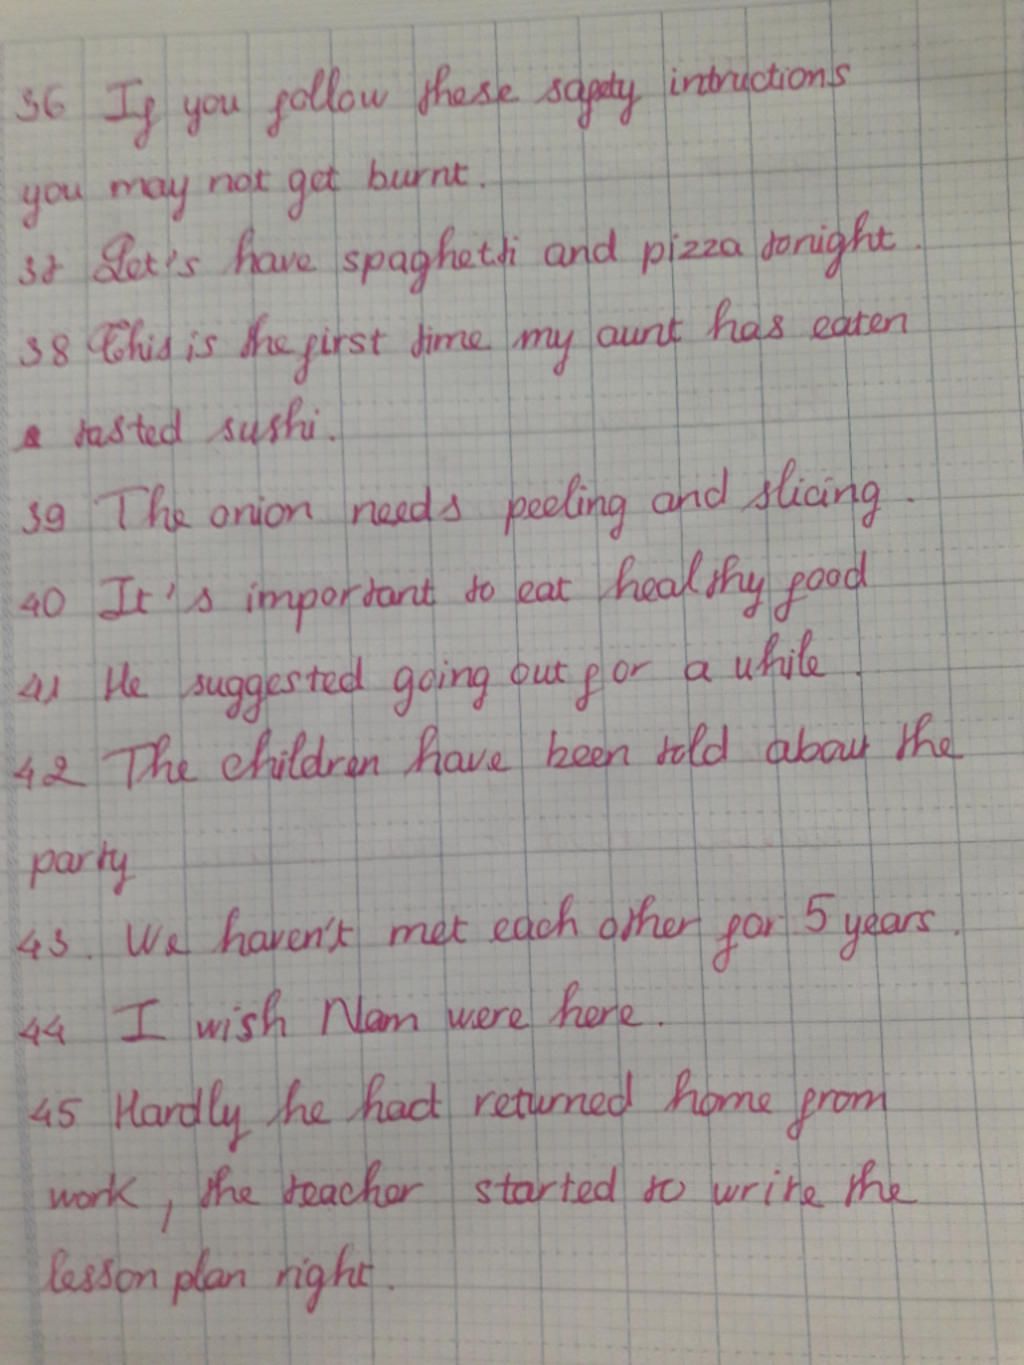 36 If you follow these safety intructions
you may not get burnt.
37 Let's have spaghetti and pizza tonight.
38 This is the first time my aunt has eaten
tasted sushi.
39 The onion needs peeling and slicing.
40 It's important to eat healthy food
41 He suggested going out for a while.
42 The children have been told about the
party
43. We haven't met each other for 5 years.
44 I wish Nam were here.
45 Hardly he had returned home from
work, the teacher started to write the
lesson plan right.